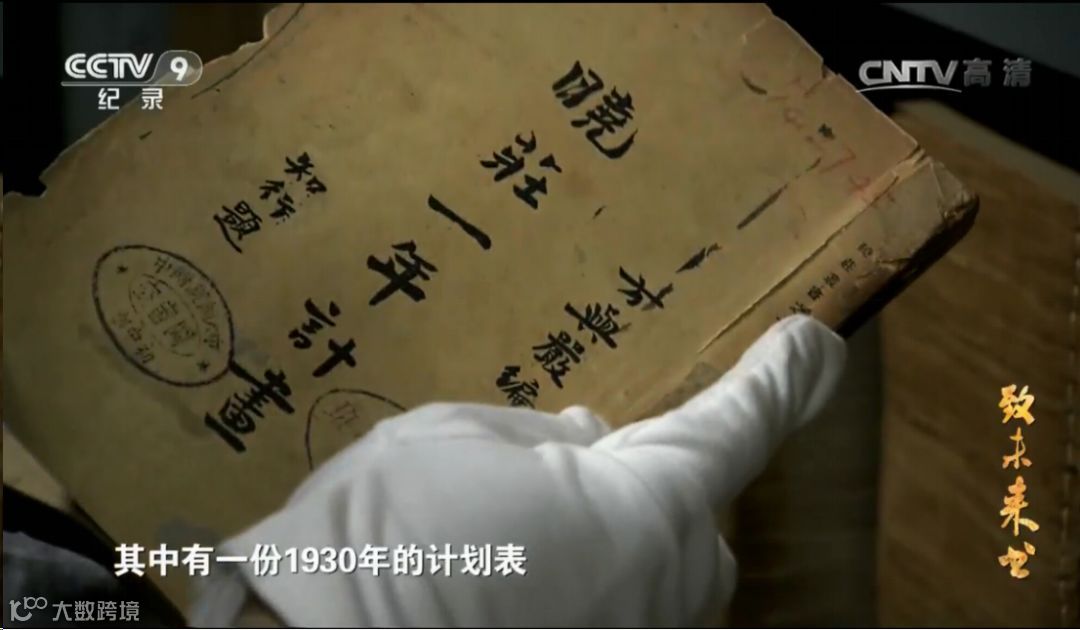 CCTV 9
纪录
CNTV高清
曉莊一年計畫
方與嚴編
知行題
致未来书
其中有一份1930年的计划表
大数跨境